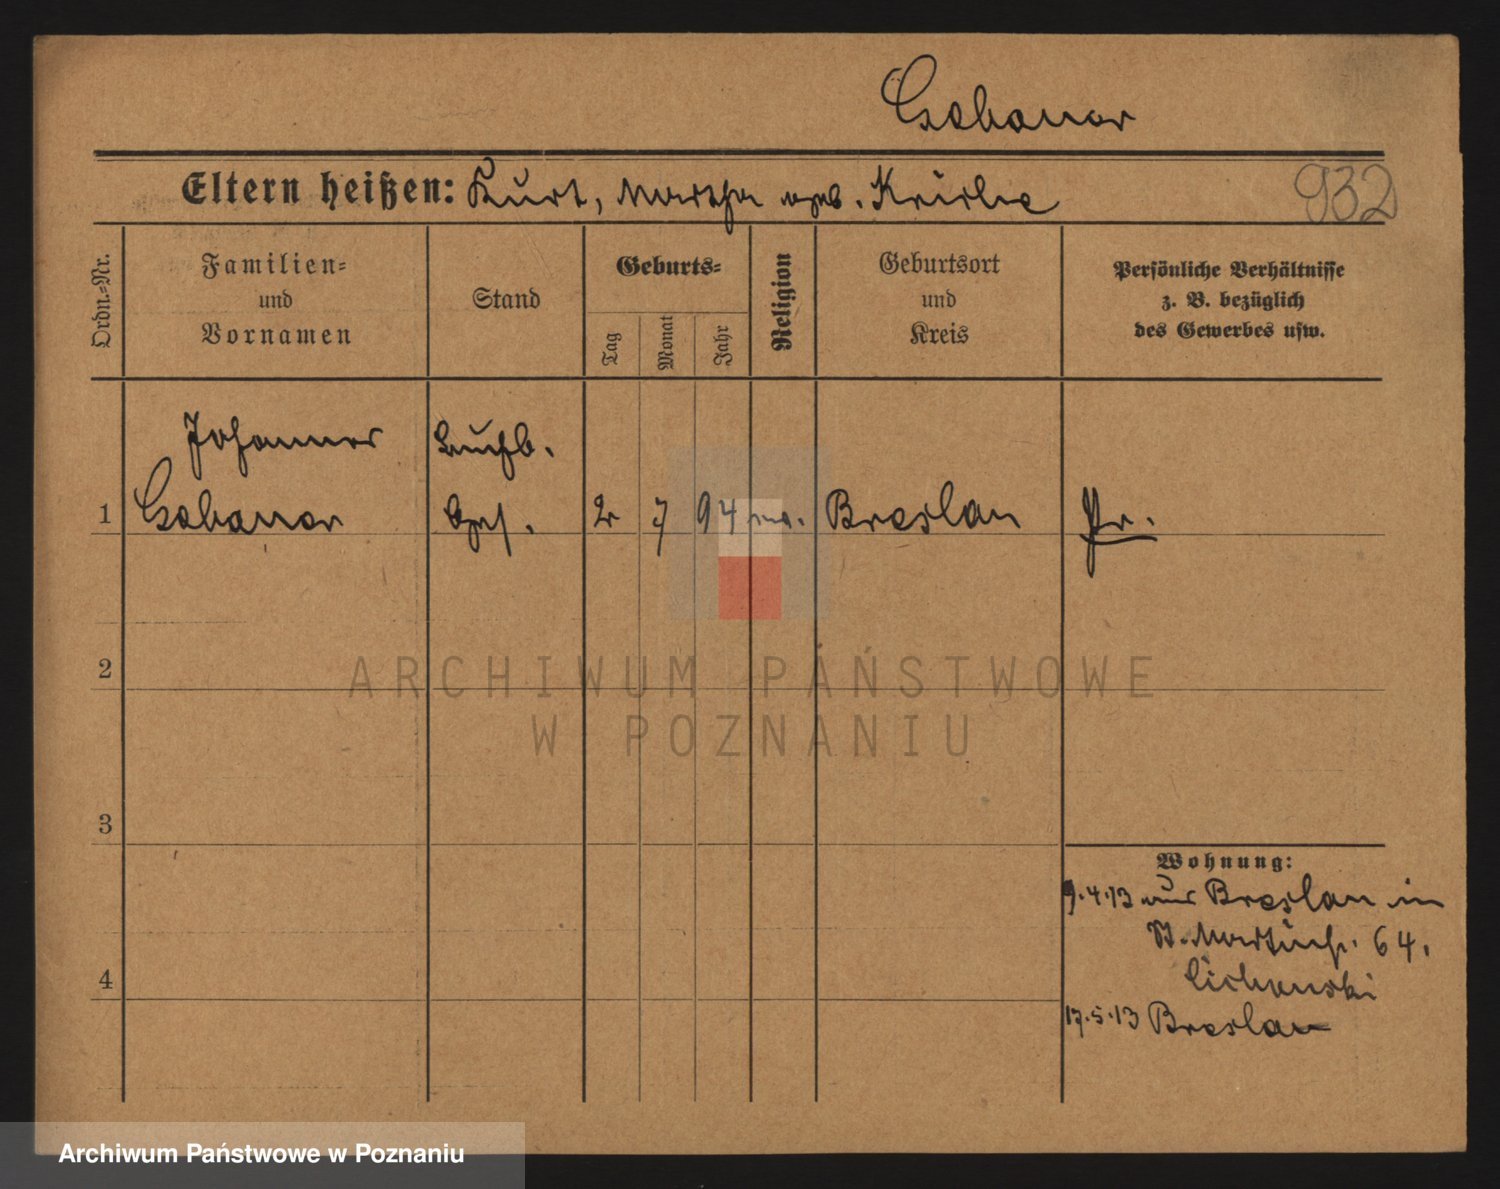 932
Eltern heißen: Kurt, Martha geb.
Ordn.=Nr.
Familien=
und
Vornamen
Stand
Geburts=
Tag
Monat
Jahr
Religion
Geburtsort
und
Kreis
Persönliche Verhältnisse
z. B. bezüglich
des Gewerbes usw.
Johannes
1 2 7 94 Breslau Pr.
2
3
4
Wohnung:
9.4.13 aus Breslau in
St. Martinstr. 64.
17.5.13 Breslau
ARCHIWUM PAŃSTWOWE
W POZNANIU
Archiwum Państwowe w Poznaniu